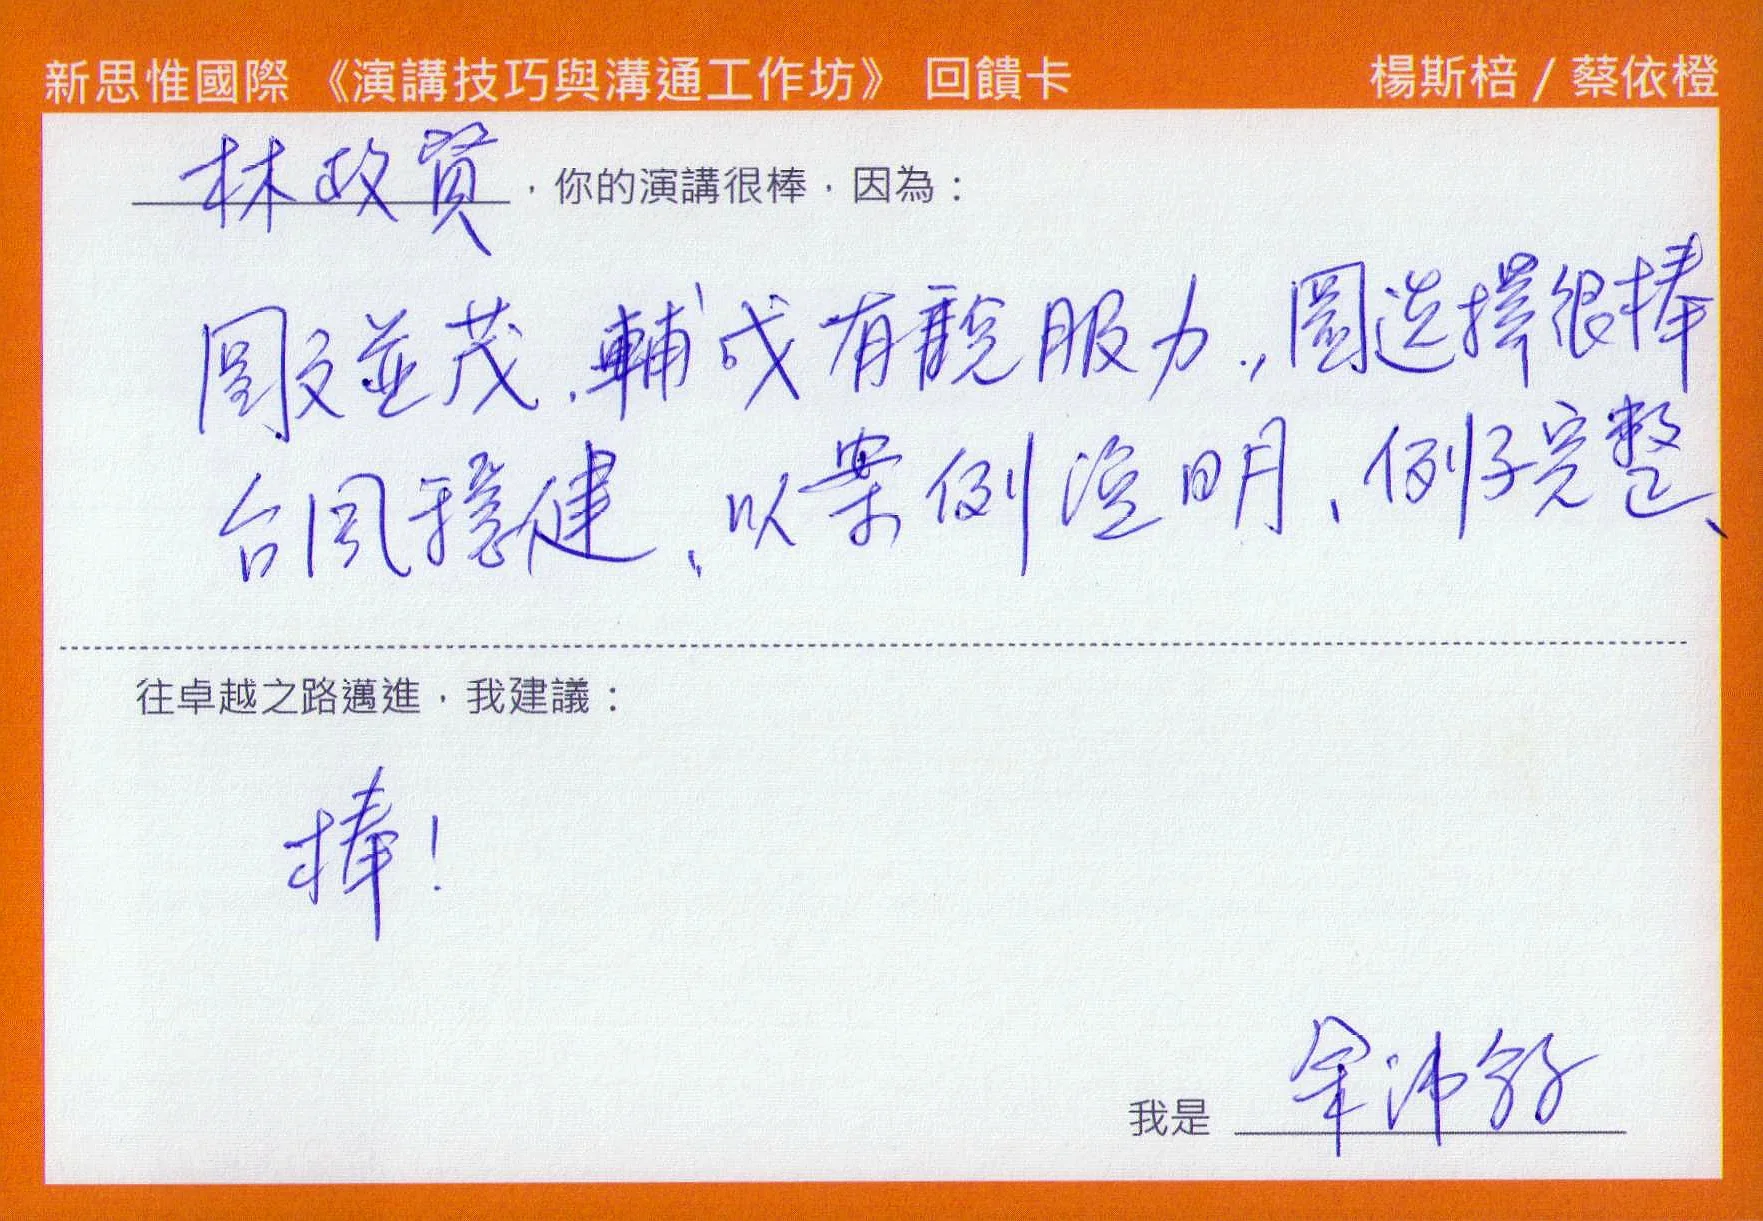 新思惟國際 《演講技巧與溝通工作坊》 回饋卡 楊斯棓 / 蔡依橙
林政賢，你的演講很棒，因為：
圖文並茂、輔成有說服力、圖選擇很棒
台風穩健、以案例證明、例子完整、
往卓越之路邁進，我建議：
棒！
我是